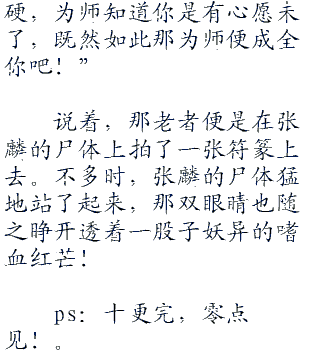 硬，为师知道你是有心愿未
了，既然如此那为师便成全
你吧！”
说着，那老者便是在张
麟的尸体上拍了一张符篆上
去。不多时，张麟的尸体猛
地站了起来，那双眼睛也随
之睁开透着一股子妖异的嗜
血红芒！
ps：十更完，零点
见！。